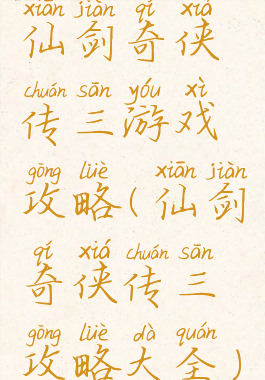 xiān jiàn qí xiá
仙剑奇侠
chuán sān yóu xì
传三游戏
gōng lüè xiān jiàn
攻略(仙剑
qí xiá chuán sān
奇侠传三
gōng lüè dà quán
攻略大全)